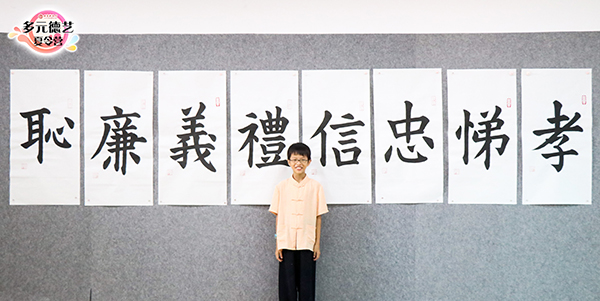 多元德艺
夏令营
孝悌忠信禮義廉恥